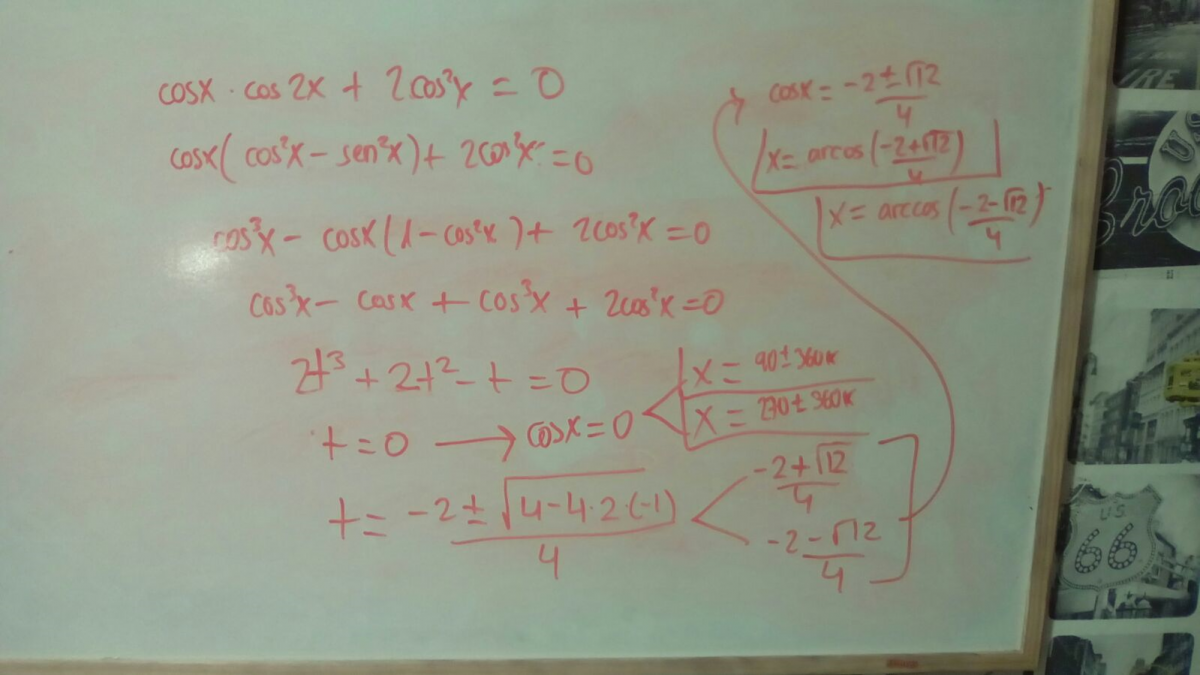 cosx · cos2x + 2cos²x = 0
cosx(cos²x - sen²x) + 2cos²x = 0
cos³x - cosx(1 - cos²x) + 2cos²x = 0
cos³x - cosx + cos³x + 2cos²x = 0
2t³ + 2t² - t = 0
t = 0 → cosx = 0
x = 90 ± 360k
x = 270 ± 360k
t = (-2 ± √(4 - 4·2·(-1)))/4
(-2 + √12)/4
(-2 - √12)/4
cosx = (-2 ± √12)/4
x = arcos((-2 + √12)/4)
x = arccos((-2 - √12)/4)
US
66